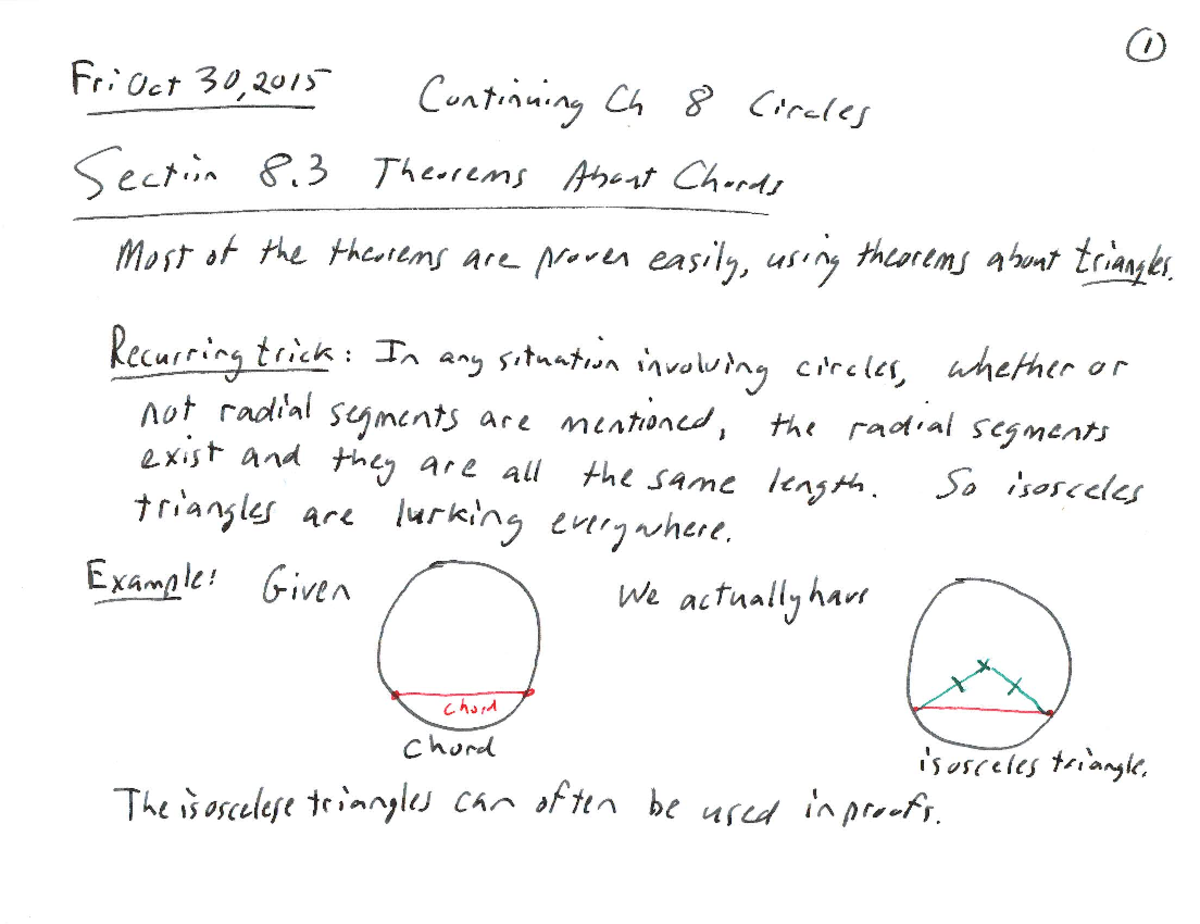 ①
Fri Oct 30, 2015 Continuing Ch 8 Circles
Section 8.3 Theorems About Chords
Most of the theorems are proven easily, using theorems about triangles.
Recurring trick: In any situation involving circles, whether or
not radial segments are mentioned, the radial segments
exist and they are all the same length. So isosceles
triangles are lurking everywhere.
Example: Given We actually have
chord
chord
isosceles triangle.
The isoscelese triangles can often be used in proofs.